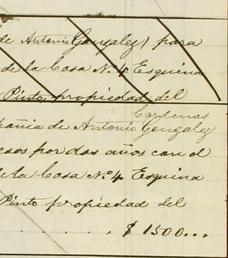 de Antonio Gonzalez) para
de la Casa N. 4 Esquina
Pinto, propiedad del
Cardenas
pañia de Antonio Gonzalez
esos por dos años con el
de la Casa Nº 4 Esquina
Pinto propiedad del
. . . . . . $ 1500...